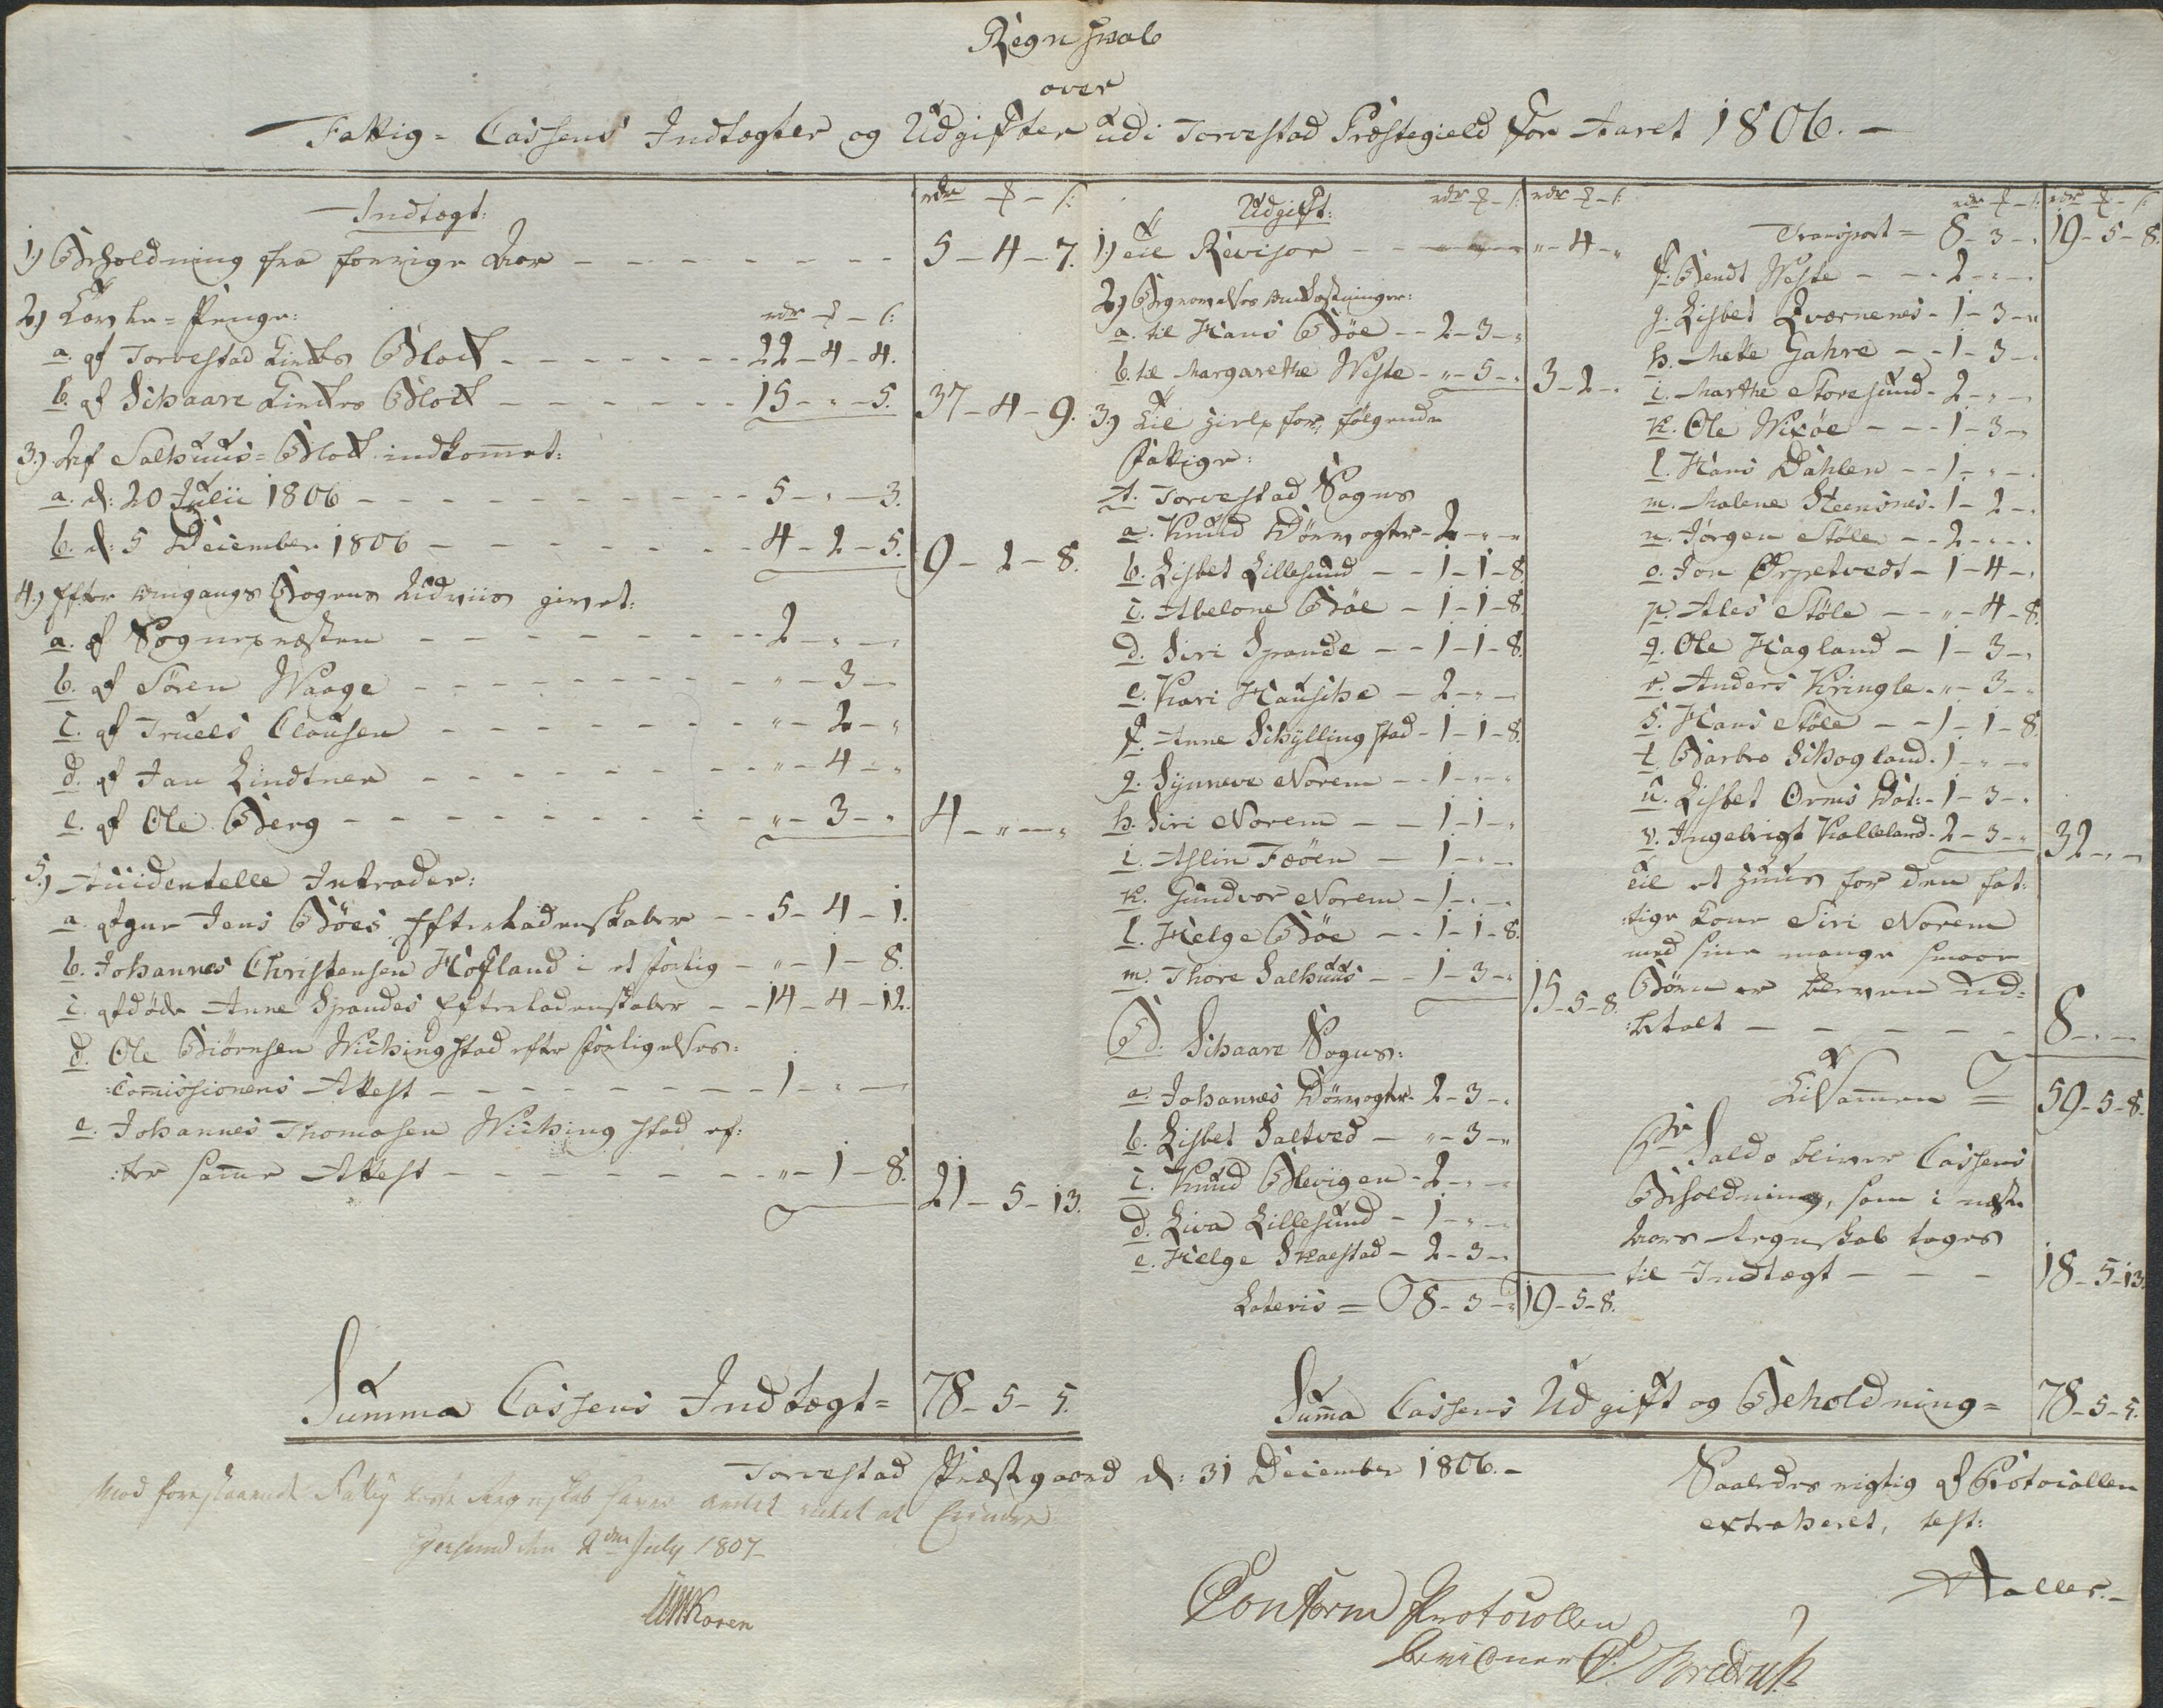 Regnskab
over
Fattig-Cassens Indtægter og Udgifter udi Torvestad Præstegield for Aaret 1806.
Indtægt:
rdr - ꝥ - s:
1) Beholdning fra forrige Aar - - - 5 - 4 - 7.
2) Tavle-Penge: rdr - ꝥ - s:
a. af Torvestad Kirkes Blok - - - 22 - 4 - 4.
b. af Schaare Kirkes Blok - - - 15 - " - 5. 37 - 4 - 9.
3.) Af Salhuus-Blok indkommet:
a. d: 20 Julii 1806 - - - 5 - " - 3.
b. d: 5 December 1806 - - - 4 - 2 - 5. 9 - 2 - 8.
4.) Efter Omgangs Bogens Udviis givet:
a. af Sognepræsten - - - 2 - " - "
b. af Sören Waage - - - " - 3 - "
c. af Truels Clausen - - - " - 2 - "
d. af Jan Lindtner - - - " - 4 - "
e. af Ole Berg - - - " - 3 - " 4 - " - "
5.) Accidentelle Intrader:
a. afgne Jens Böes Efterladenskaber - - 5 - 4 - 1.
b. Johannes Christensen Hofland i et forlig - " - 1 - 8.
c. afdöde Anne Spandes Efterladenskaber - - 14 - 4 - 12.
d. Ole Biörnsen Wichingstad efter Forligelses-
:Comissionens Attest - - - 1 - " - "
e. Johannes Thomasen Wichingstad ef:
:ter samme Attest - - - " - 1 - 8. 21 - 5 - 13.
Summa Cassens Indtægt = 78 - 5 - 5.
Udgift: rdr - ꝥ - s: rdr - ꝥ - s:
1) til Revisor - - - " - 4 - "
2) Begravelses Omkostninger:
a. til Hans Böe - - 2 - 3 - "
b. til Margarethe Weste - " - 5 - " 3 - 2 - "
3.) Til Hielp for följende
Fattige:
A. Torvestad Sogns
a. Knud Dörvogter - 2 - " - "
b. Lisbet Lillesund - - 1 - 1 - 8.
c. Abelone Böe - 1 - 1 - 8.
d. Siri Spande - - 1 - 1 - 8.
e. Kari Hausche - 2 - " - "
f. Anne Schyllingstad - 1 - 1 - 8.
g. Synneve Norem - - 1 - " - "
h. Siri Norem - - 1 - 1 - "
i. Aslin Fæöen - 1 - " - "
k. Gundvor Norem - 1 - " - "
l. Helge Böe - - 1 - 1 - 8.
m. Thore Salhuus - - 1 - 3 - " 15 - 5 - 8.
B. Schaare Sogns:
a. Johannes Dörvogter - 2 - 3 - "
b. Lisbet Saltved - " - 3 - "
c. Knud Blevigen - 2 - " - "
d. Liva Lillesund - 1 - " - "
e. Helge Skaestad - 2 - 3 - "
Lateris = 8 - 3 - " 19 - 5 - 8.
rdr - ꝥ - s: rdr - ꝥ - s:
Transport = 8 - 3 - " 19 - 5 - 8.
f. Bendt Weste - - 2 - " - "
g. Lisbet Qværnenes - 1 - 3 - "
h. Mette Gahre - - 1 - 3 - "
i. Marthe Storesund - 2 - " - "
k. Ole Wixöe - - 1 - 3 - "
l. Hans Dahlen - - 1 - " - "
m. Malene Steensnes - 1 - 2 - "
n. Jörgen Stöle - - 2 - " - "
o. Jon Ørpetvedt - 1 - 4 - "
p. Ales Stöle - - " - 4 - 8.
q. Ole Hagland - 1 - 3 - "
r. Anders Kringle - " - 3 - "
s. Hans Stöle - - 1 - 1 - 8.
t. Barbro Schogland - 1 - " - "
u. Lisbet Orms Dat: - 1 - 3 - "
v. Ingebrigt Kalleland - 2 - 3 - " 32 - " - "
Til et Huus for den fat:
:tige Kone Siri Norem
med sine mange smaae
Börn er bleven ud:
:betalt - - - 8 - " - "
Tilsammen = 59 - 5 - 8.
Pr Saldo bliver Cassens
Beholdning, som i næste
Aars Regnskab tages
til Indtægt - - - 18 - 5 - 13.
Summa Cassens Udgift og Beholdning = 78 - 5 - 5.
Torvestad Præstegaard d: 31 December 1806.
Saaledes rigtig af Protocollen
extraheret, test:
Aaller.
Mod forestaaende Fattig Casse Regnskab haves intet at Erindre
Jersund den 2den July 1807
UWKoren
Conform Protocollen